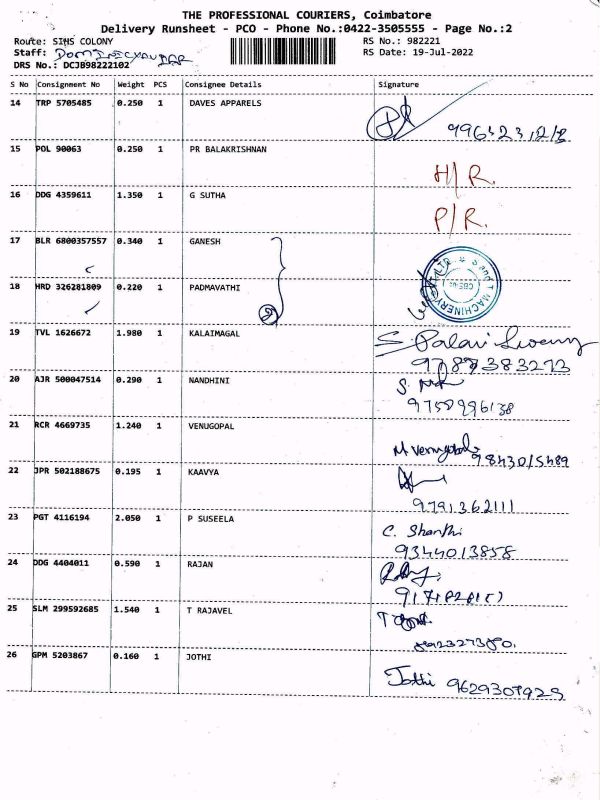 THE PROFESSIONAL COURIERS, Coimbatore
Delivery Runsheet - PCO - Phone No.:0422-3505555 - Page No.:2
Route: SINS COLONY
RS No.: 982221
Staff:
RS Date: 19-Jul-2022
DRS No.: DCJB98222102
S No Consignment No Weight PCS Consignee Details Signature
14 TRP 5705485 0.250 1 DAVES APPARELS
15 POL 90063 0.250 1 PR BALAKRISHNAN
H/R.
16 DDG 4359611 1.350 1 G SUTHA
P/R.
17 BLR 6800357557 0.340 1 GANESH
18 HRD 326281809 0.220 1 PADMAVATHI
MACHINERY
19 TVL 1626672 1.980 1 KALAIMAGAL
S.
20 AJR 500047514 0.290 1 NANDHINI
9750996138
21 RCR 4669735 1.240 1 VENUGOPAL
M Venugopal
9843015489
22 JPR 502188675 0.195 1 KAAVYA
9791362111
23 PGT 4116194 2.050 1 P SUSEELA
C. Shanthi
9344013858
24 DDG 4404011 0.590 1 RAJAN
25 SLM 299592685 1.540 1 T RAJAVEL
26 GPM 5203867 0.160 1 JOTHI
Jothi